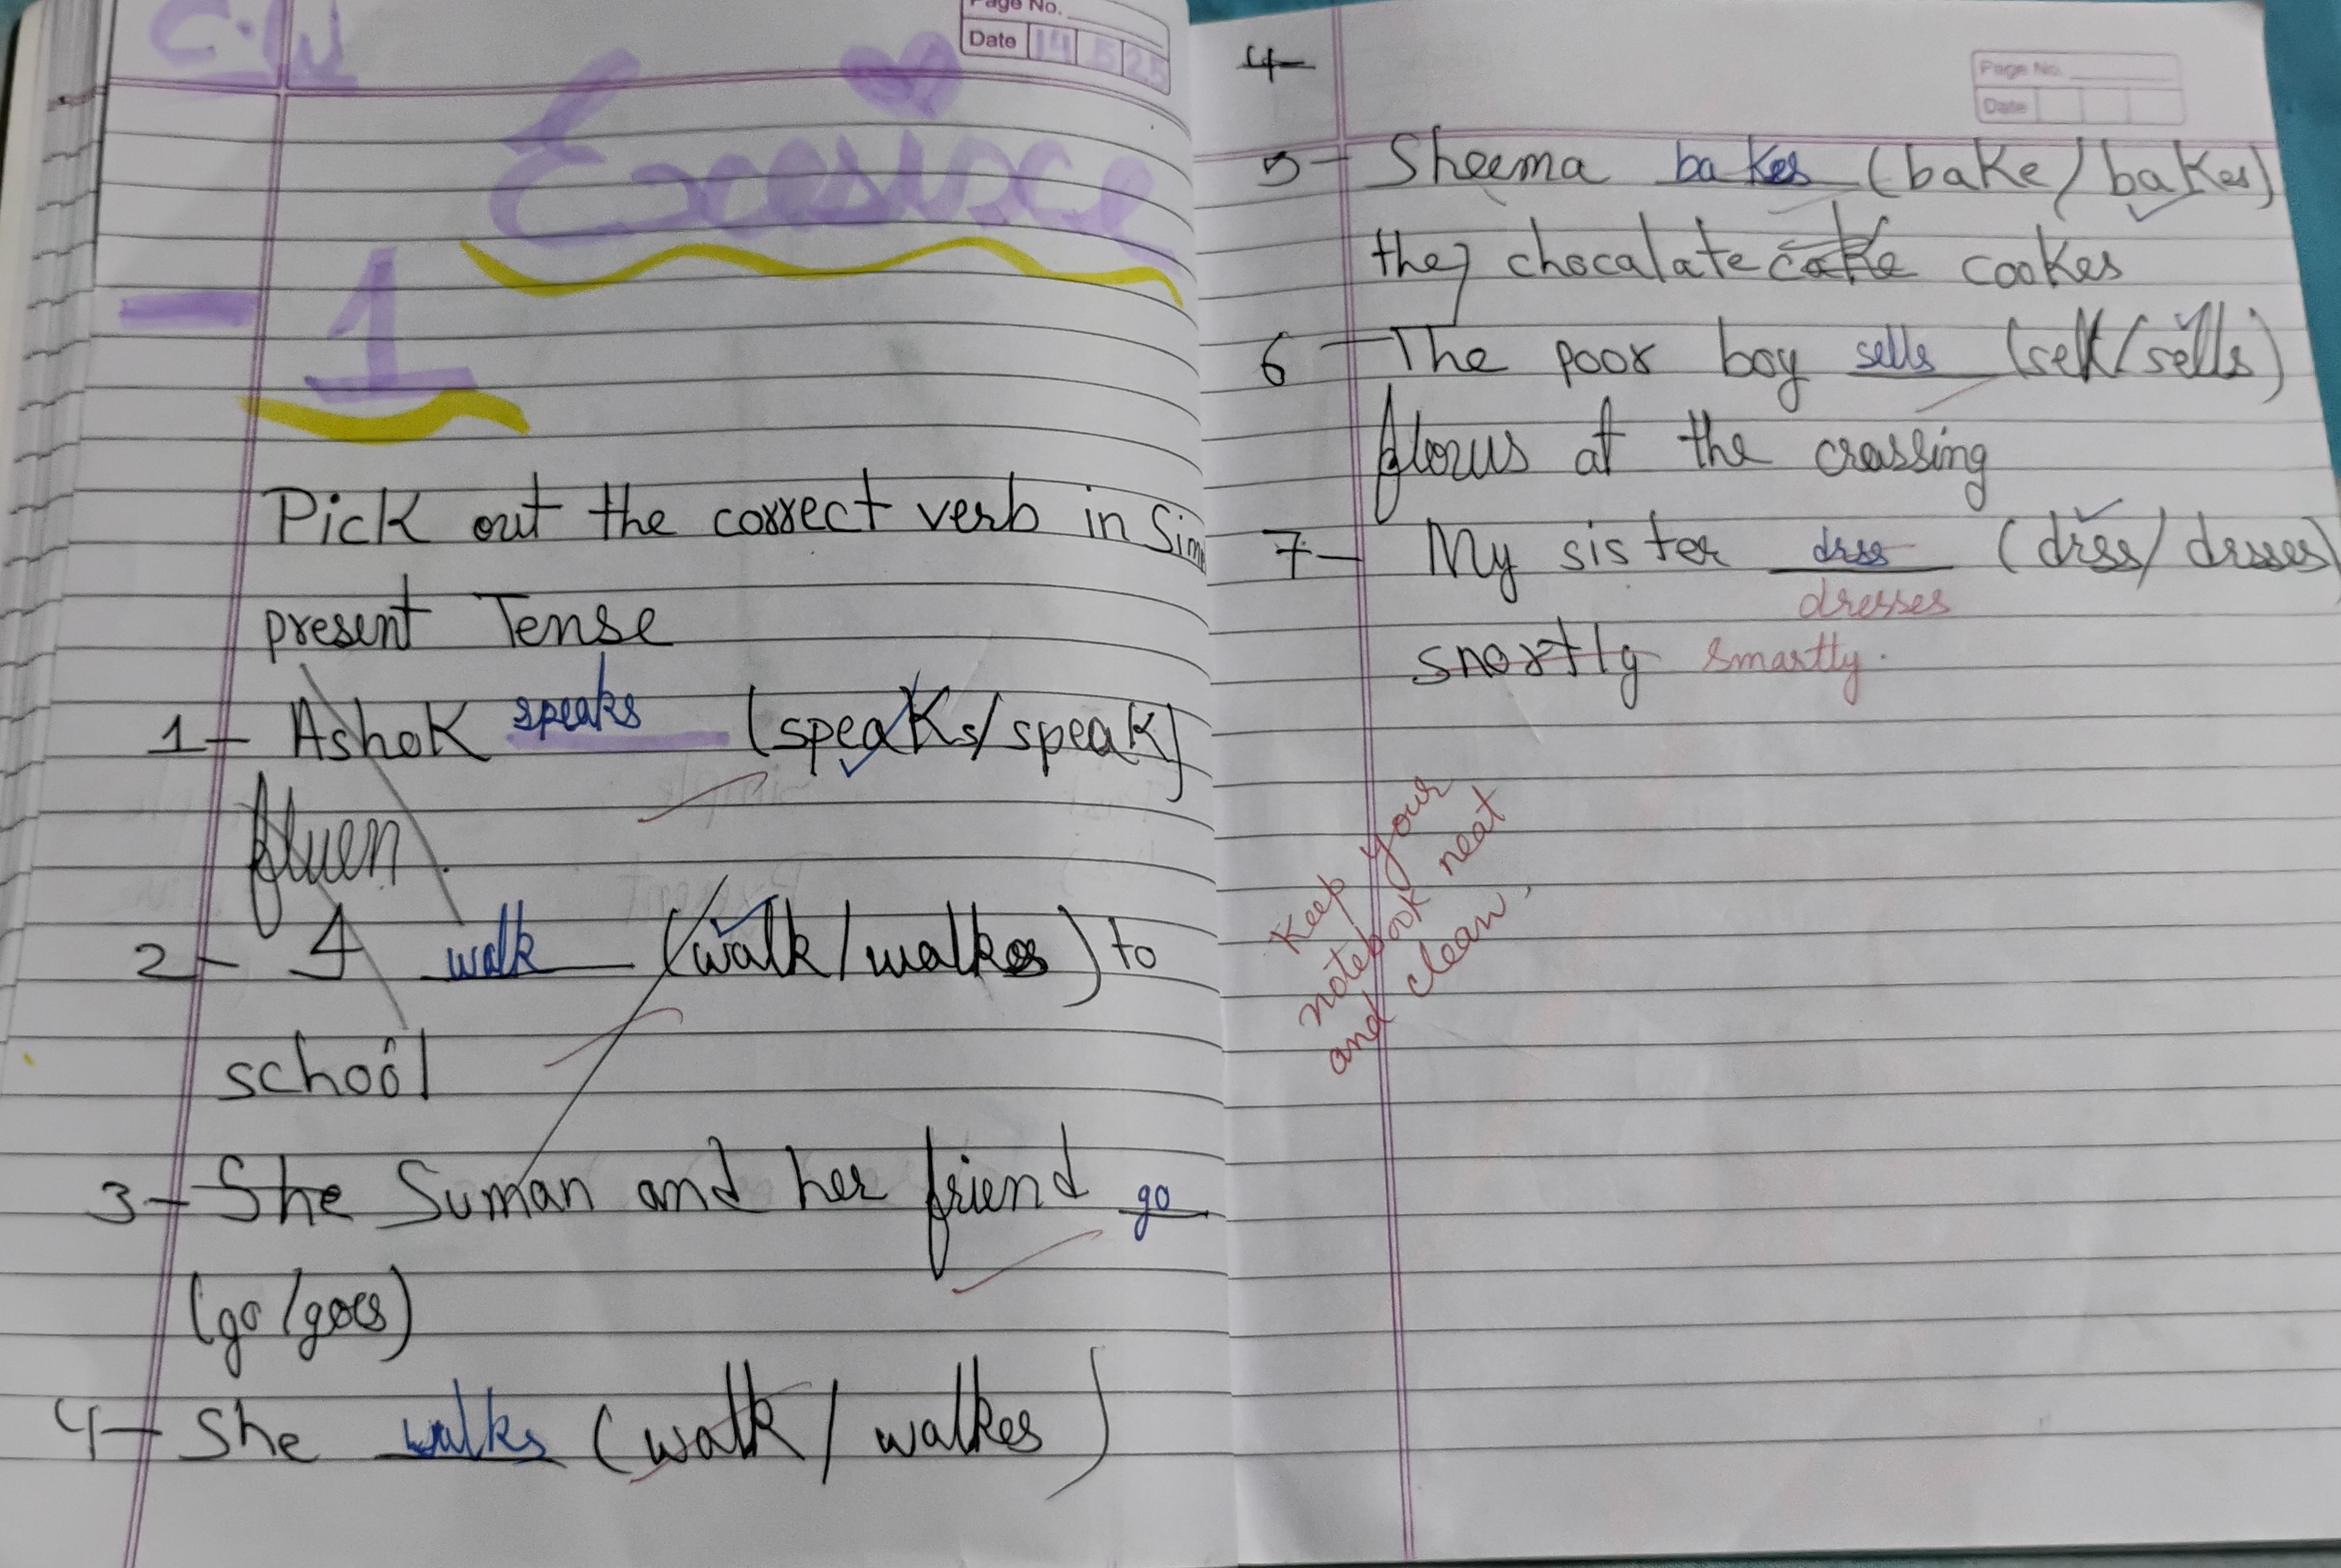 C.W
Page No.
Date 14 5 25
Exesisce
- 1
Pick out the correct verb in Sim
present Tense
1- Ashok speaks (speaks/speak)
fluen.
2- I walk (walk/walkes) to
school
3- She Suman and her friend go
(go/goes)
4- She walks (walk/walkes)
4-
Page No.
Date
5- Sheema bakes (bake/bakes)
they chocalate cake cookes
6- The poor boy sells (sell/sells)
at the crossing
7- My sister drss (drss/drsses)
dresses
snortly smartly.
Keep your
notebook neat
and clean,